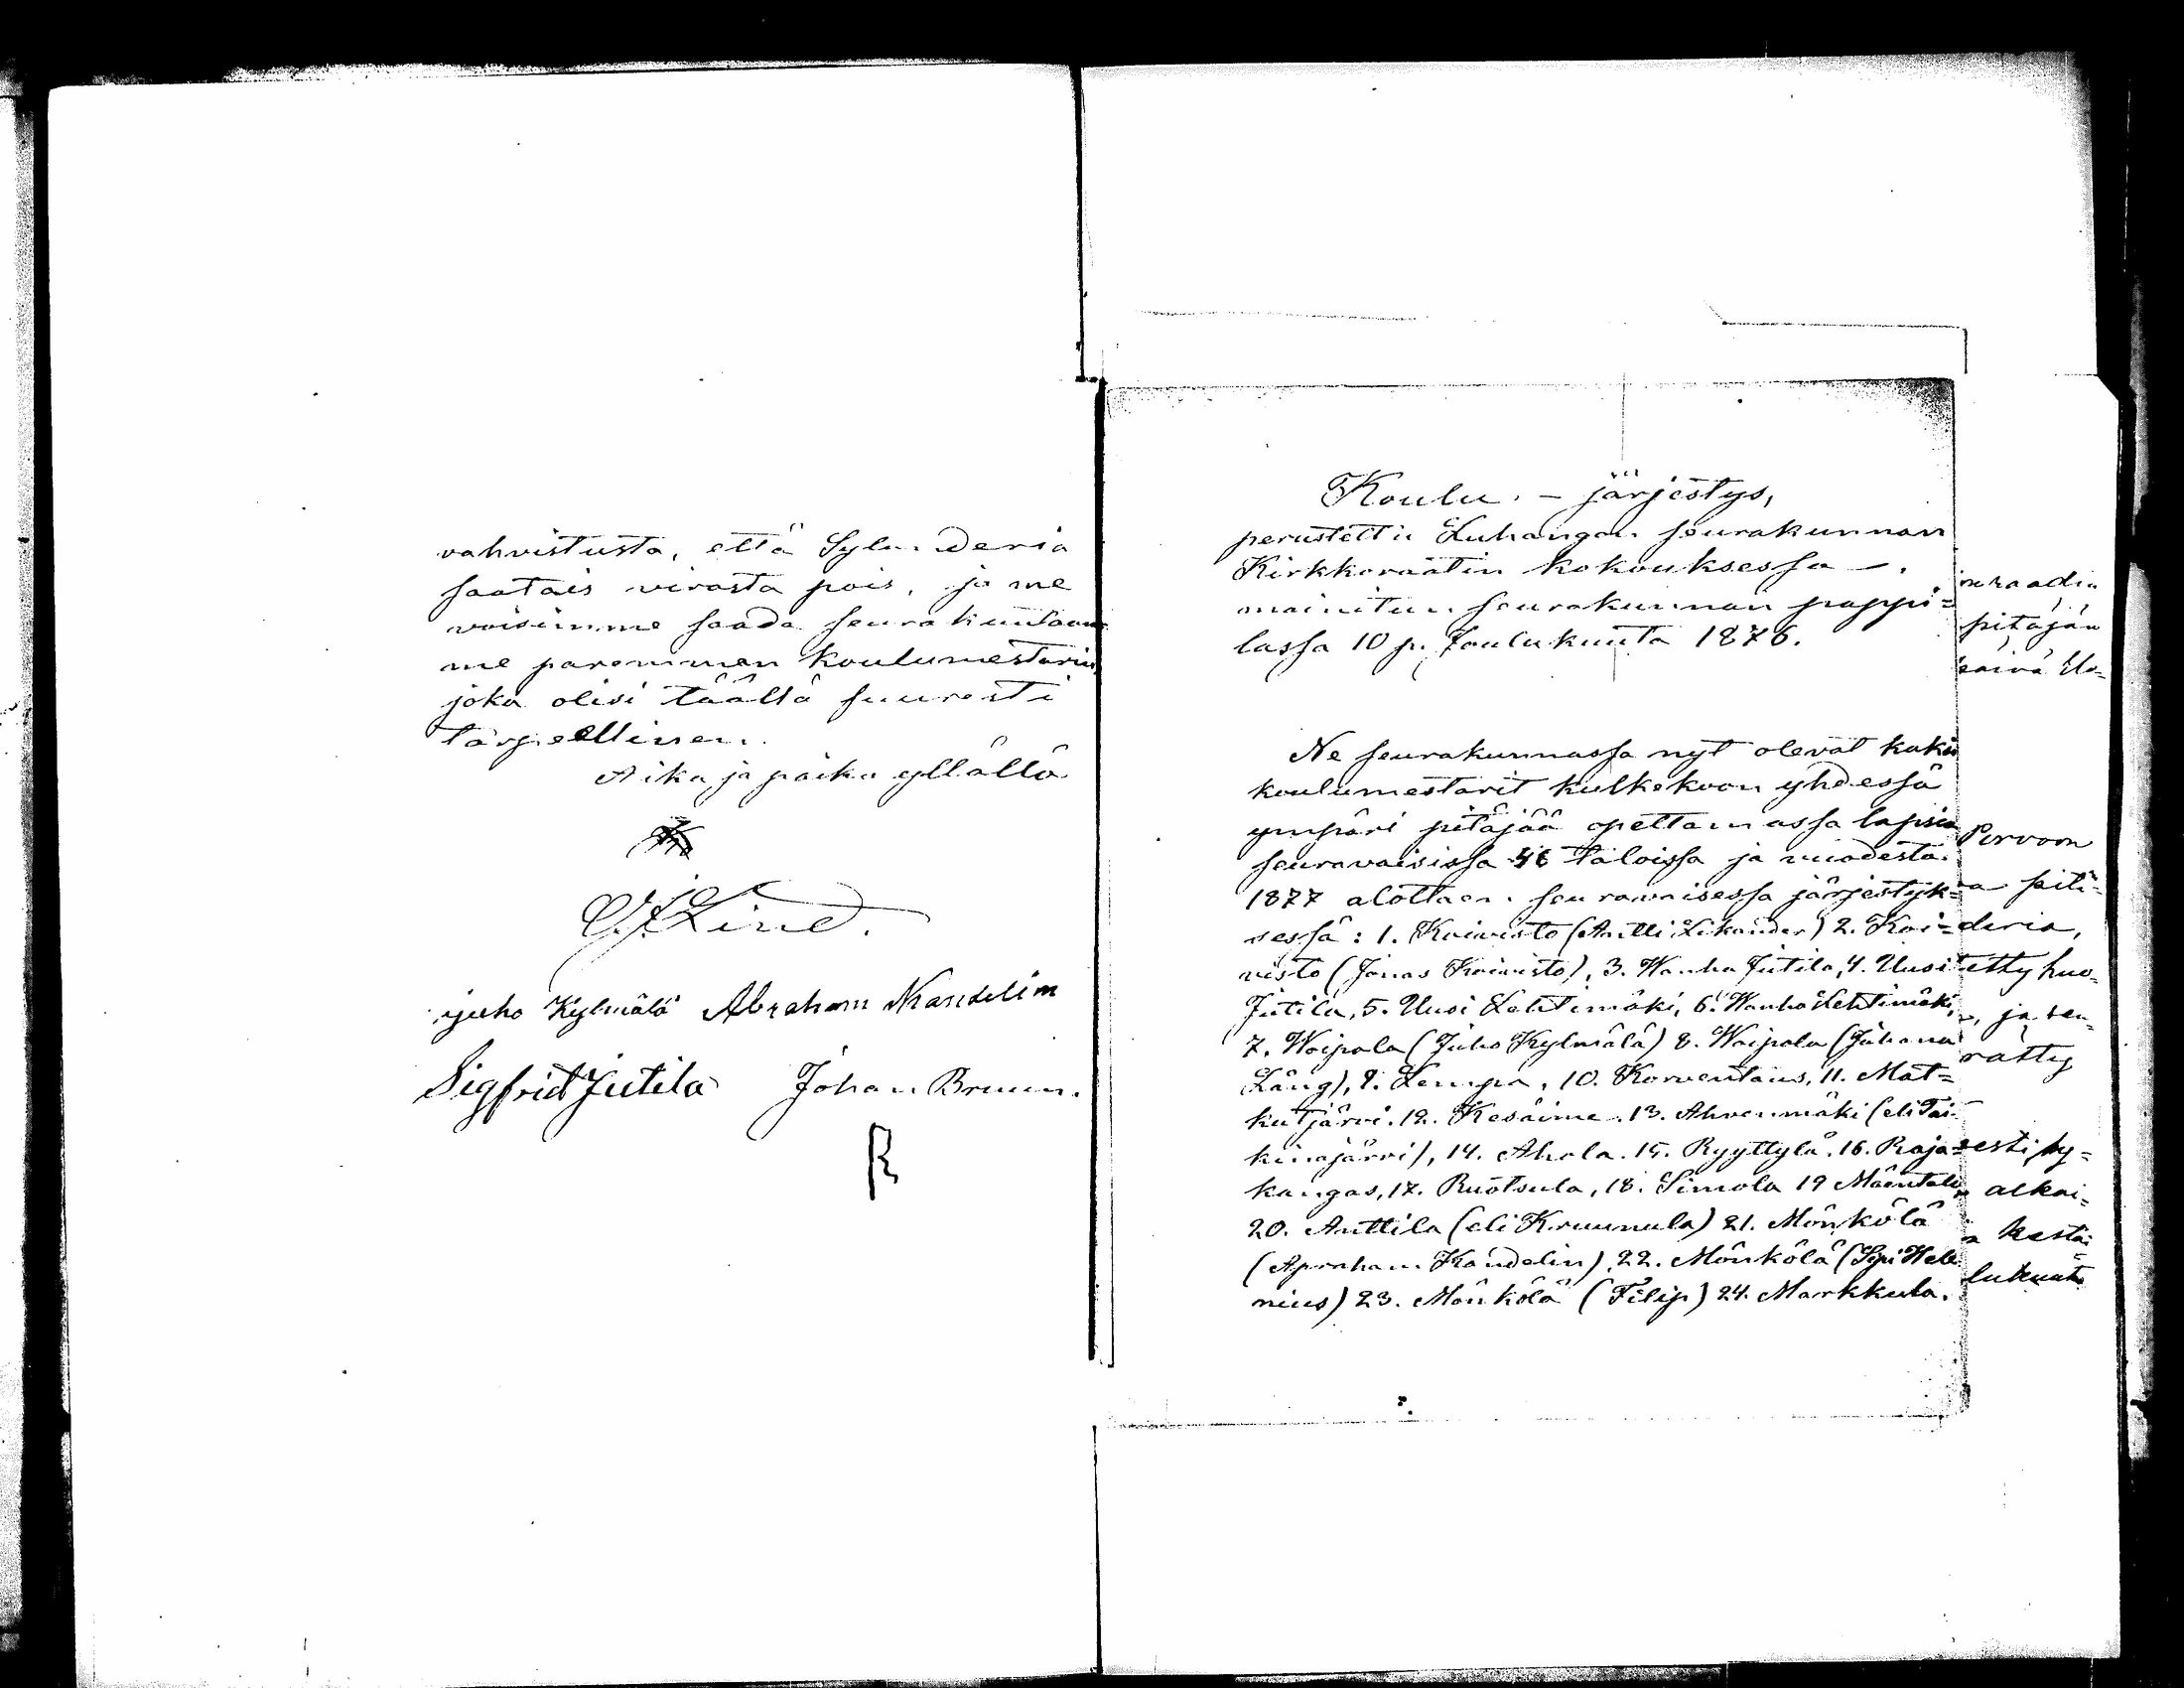 vahvistusta, että Sylanderia
saatais virasta pois, ja me
voisimme saada seurakuntaam=
me paremman koulumestarin,
joka olisi täällä suuresti
tarpeellinen.
Aika ja paikka yllällä
C. J. Lind.
juho Kylmälä Abraham Kandelin
Sigfrid Jutila Johan Bruun.
Koulu - järjestys,
perustettu Luhangan seurakunnan
Kirkkoraatin kokouksessa
mainitun seurakunnan pappi=
lassa 10 p. Joulukuuta 1876.
Ne seurakunnassa nyt olevat kaksi
koulumestarit kulkekoon yhdessä
ympäri pitäjää opettamassa lapsia
seuravaisissa 46 taloissa ja vuodesta
1877 alottaen seuravaisessa järjestyk=
sessä: 1. Koivisto (Antti Likander) 2. Koi=
visto (Jonas Koivisto), 3. Wanha Jutila, 4. Uusi
Jutila, 5. Uusi Lehtimäki, 6. Wanha Lehtimäki,
7. Woipala (Juho Kylmälä) 8. Woipala (Juhana
Lång), 9. Lempa, 10. Korventaus, 11. Mat=
kutjärvi. 12. Kesäime. 13. Ahvenmäki (eli Tai=
kinajärvi), 14. Ahola. 15. Ryyttylä. 16. Raja=
kangas, 17. Ruotsula, 18. Simola 19 Mäntälä
20. Anttila (eli Kruunula) 21. Mönkölä
(Apraham Kandelin) 22. Mönkölä (Sipi Hele
nius) 23. Mönkölä (Filip) 24. Markkula.
nraadin
pitäjän
päivä
Porvoon
a sitä=
deria,
etty huo=
ja seu=
rattu
sesti hy=
alkai=
kestä=
lukuut